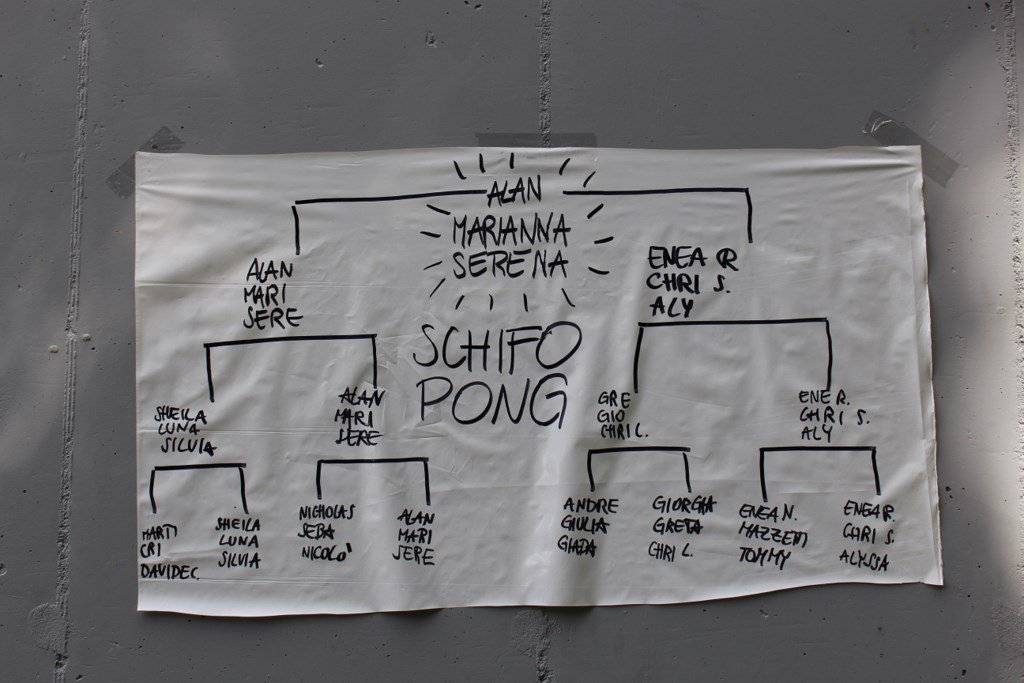 ALAN
MARIANNA
SERENA
SCHIFO
PONG
ALAN
MARI
SERE
ENEA R
CHRI S.
ALY
SHEILA
LUNA
SILVIA
ALAN
MARI
SERE
GRE
GIO
CHRI L.
ENE R.
CHRI S.
ALY
MARTI
CRI
DAVIDE C.
SHEILA
LUNA
SILVIA
NICHOLAS
SEBA
NICOLO'
ALAN
MARI
SERE
ANDRE
GIULIA
GIADA
GIORGIA
GRETA
CHRI L.
ENEA N.
MAZZETTI
TOMMY
ENEA R.
CHRI S.
ALYSSA